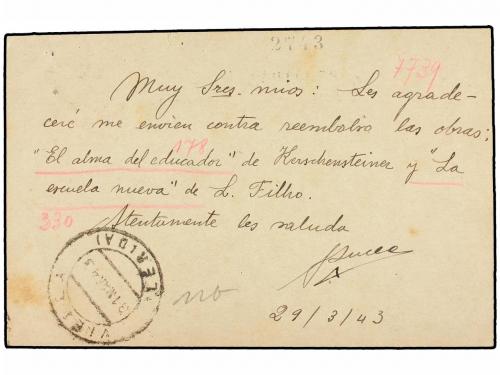 2743
7739
Muy Sres. mios: Les agrade-
ceré me envien contra reembolso las obras:
178
"El alma del educador" de Kerschensteiner y "La
escuela nueva" de L. Filho.
330
Atentamente les saluda
(LERIDA)
no
29/3/43